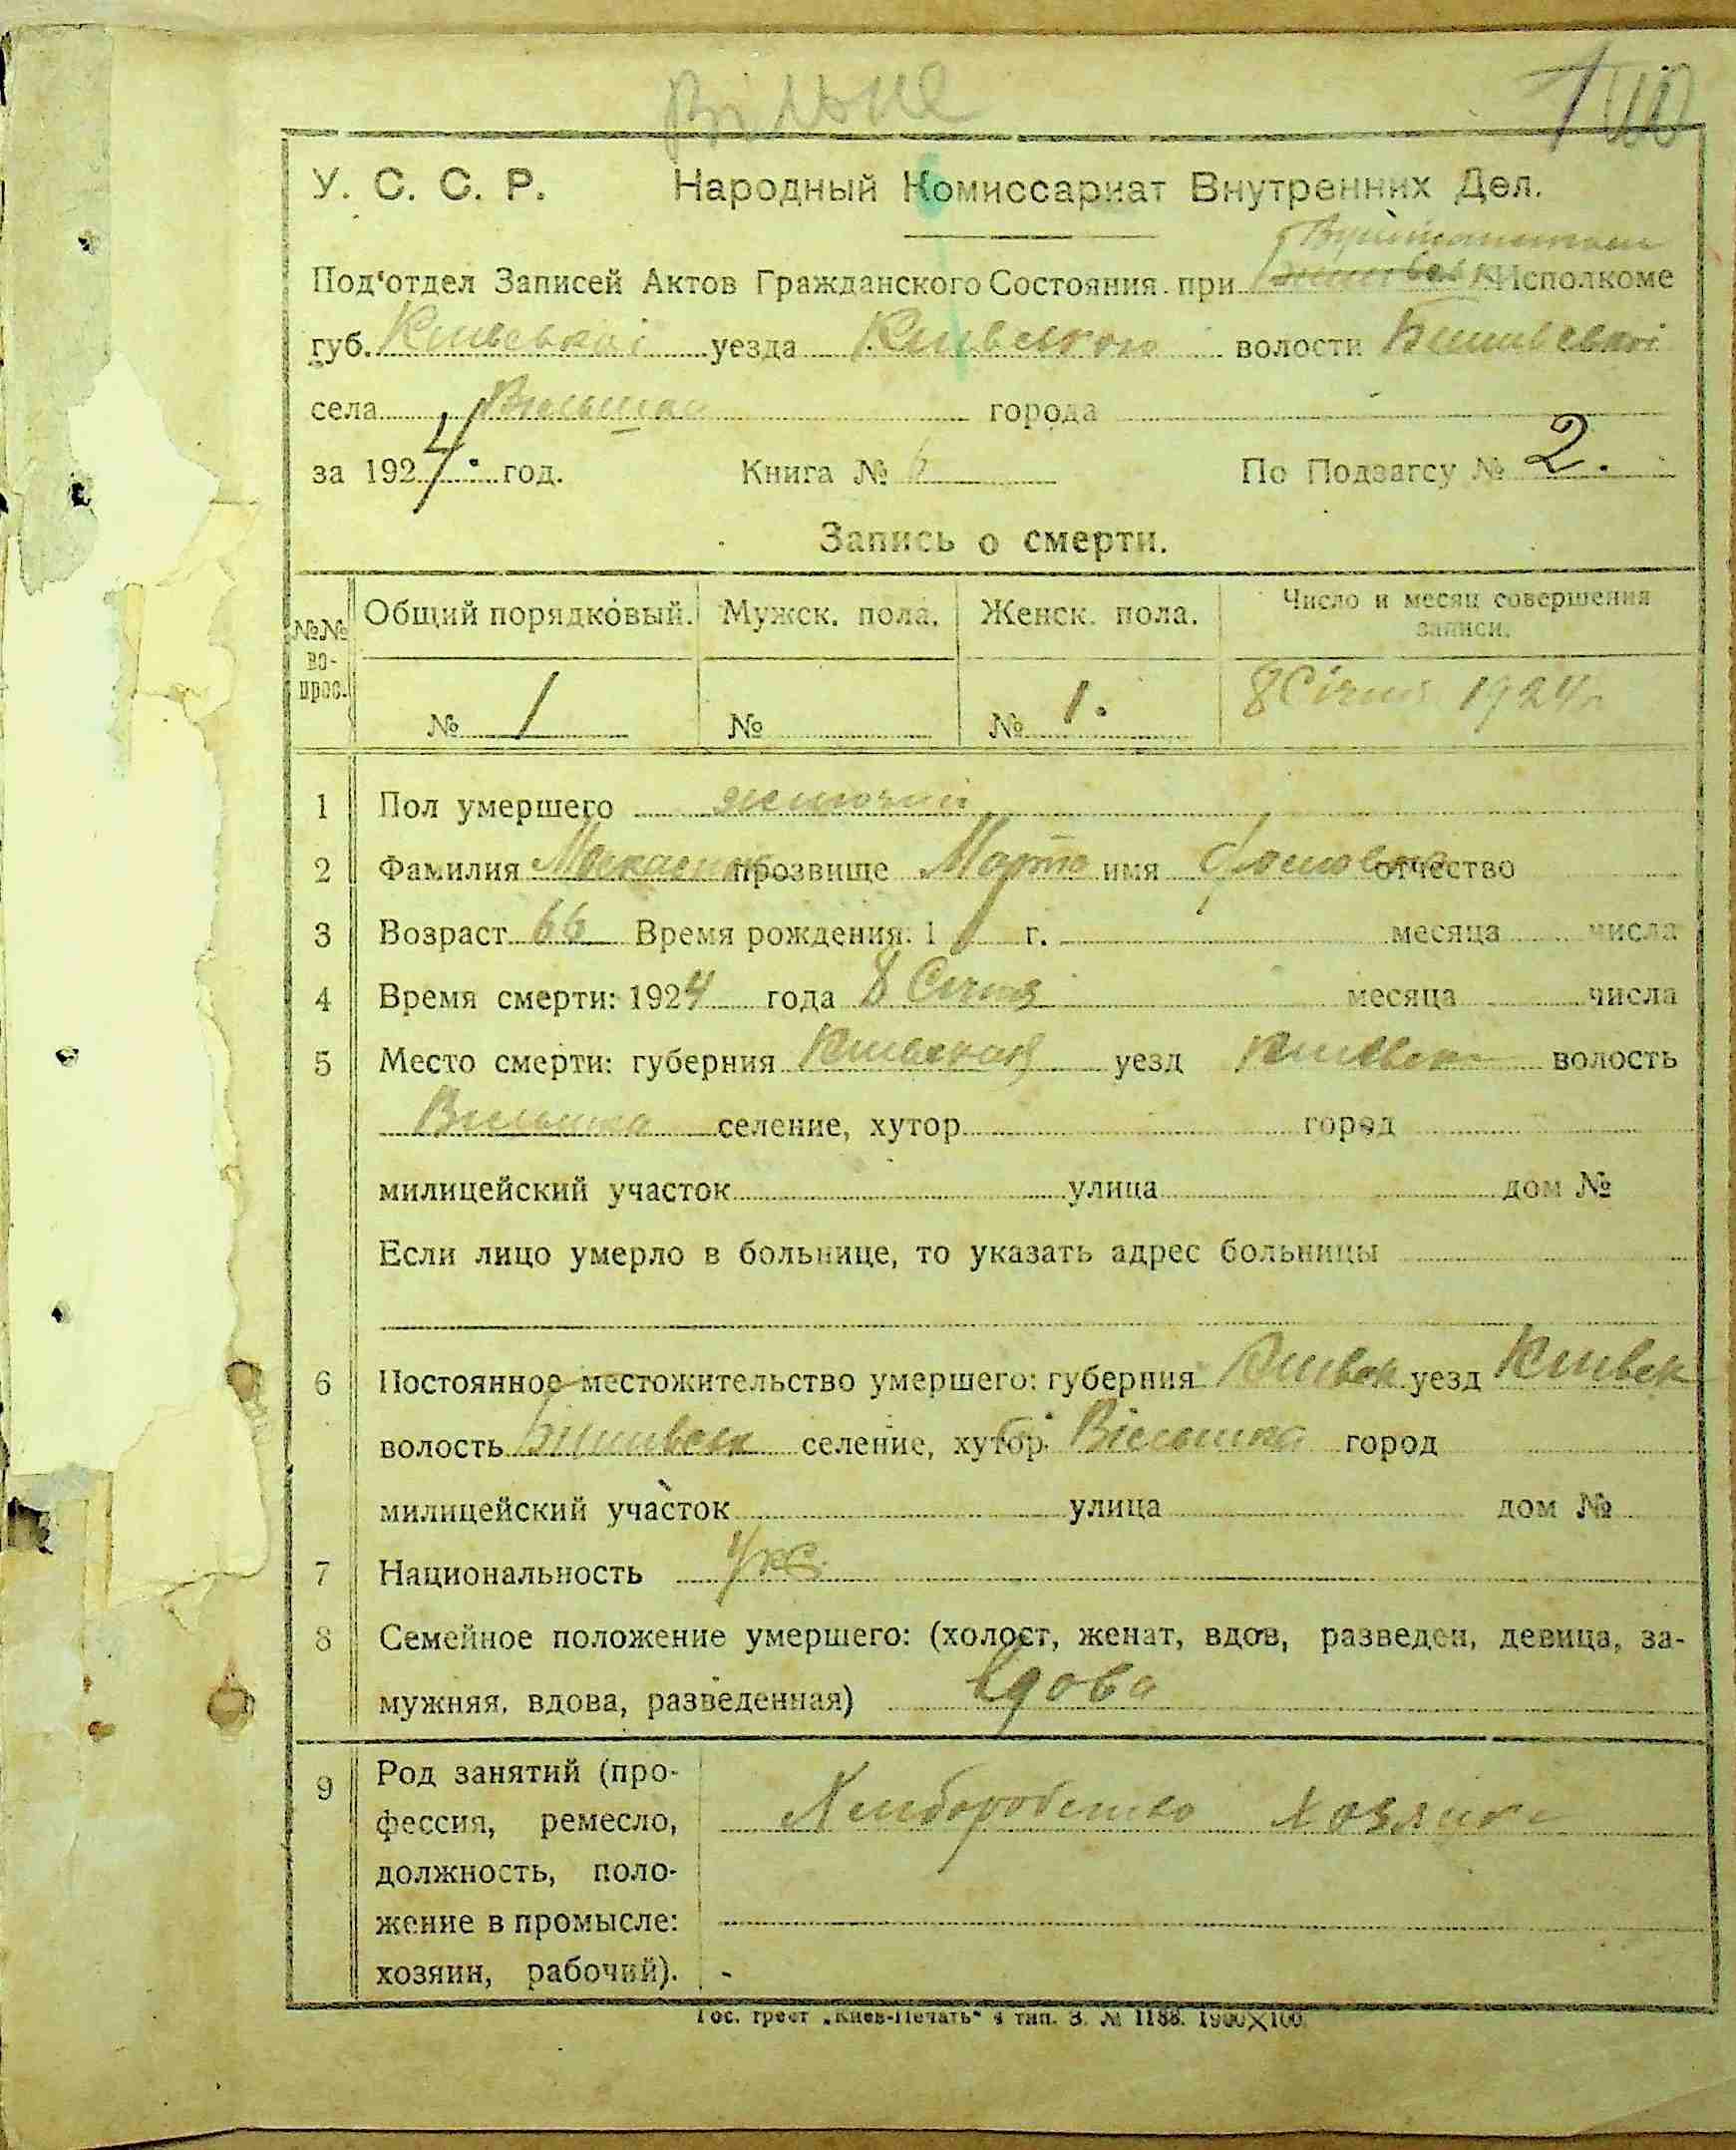 Вільне
У. С. С. Р. Народный Комиссариат Внутренних Дел.
Под'отдел Записей Актов Гражданского Состояния при Исполкоме
губ. Київської уезда Київського волости
села города
за 1924 год. Книга № По Подзагсу № 2.
Запись о смерти.
№№ вопрос. Общий порядковый. Мужск. пола. Женск. пола. Число и месяц совершения записи.
№ 1 № № 1. 8 Січня 1924 г
1 Пол умершего жіночий
2 Фамилия прозвище Марта имя отчество
3 Возраст 66 Время рождения: 1 г. месяца числа
4 Время смерти: 1924 года 8 Січня месяца числа
5 Место смерти: губерния Київская уезд волость
селение, хутор город
милицейский участок улица дом №
Если лицо умерло в больнице, то указать адрес больницы
6 Постоянное местожительство умершего: губерния Київськ уезд Київськ
волость селение, хутор город
милицейский участок улица дом №
7 Национальность Укр
8 Семейное положение умершего: (холост, женат, вдов, разведен, девица, за-
мужняя, вдова, разведенная) вдова
9 Род занятий (про-
фессия, ремесло, Хліборобство хозяйка
должность, поло-
жение в промысле:
хозяин, рабочий).
Гос. трест „Киев-Печать" 4 тип. З. № 1188. 1900×100.